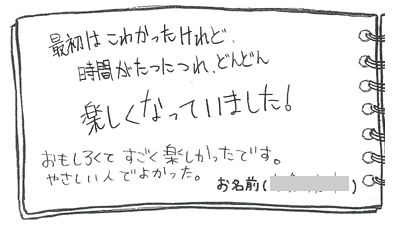 最初はこわかったけれど、
時間がたつにつれ、どんどん
楽しくなっていました!
おもしろくてすごく楽しかったです。
やさしい人でよかった。
お名前( )